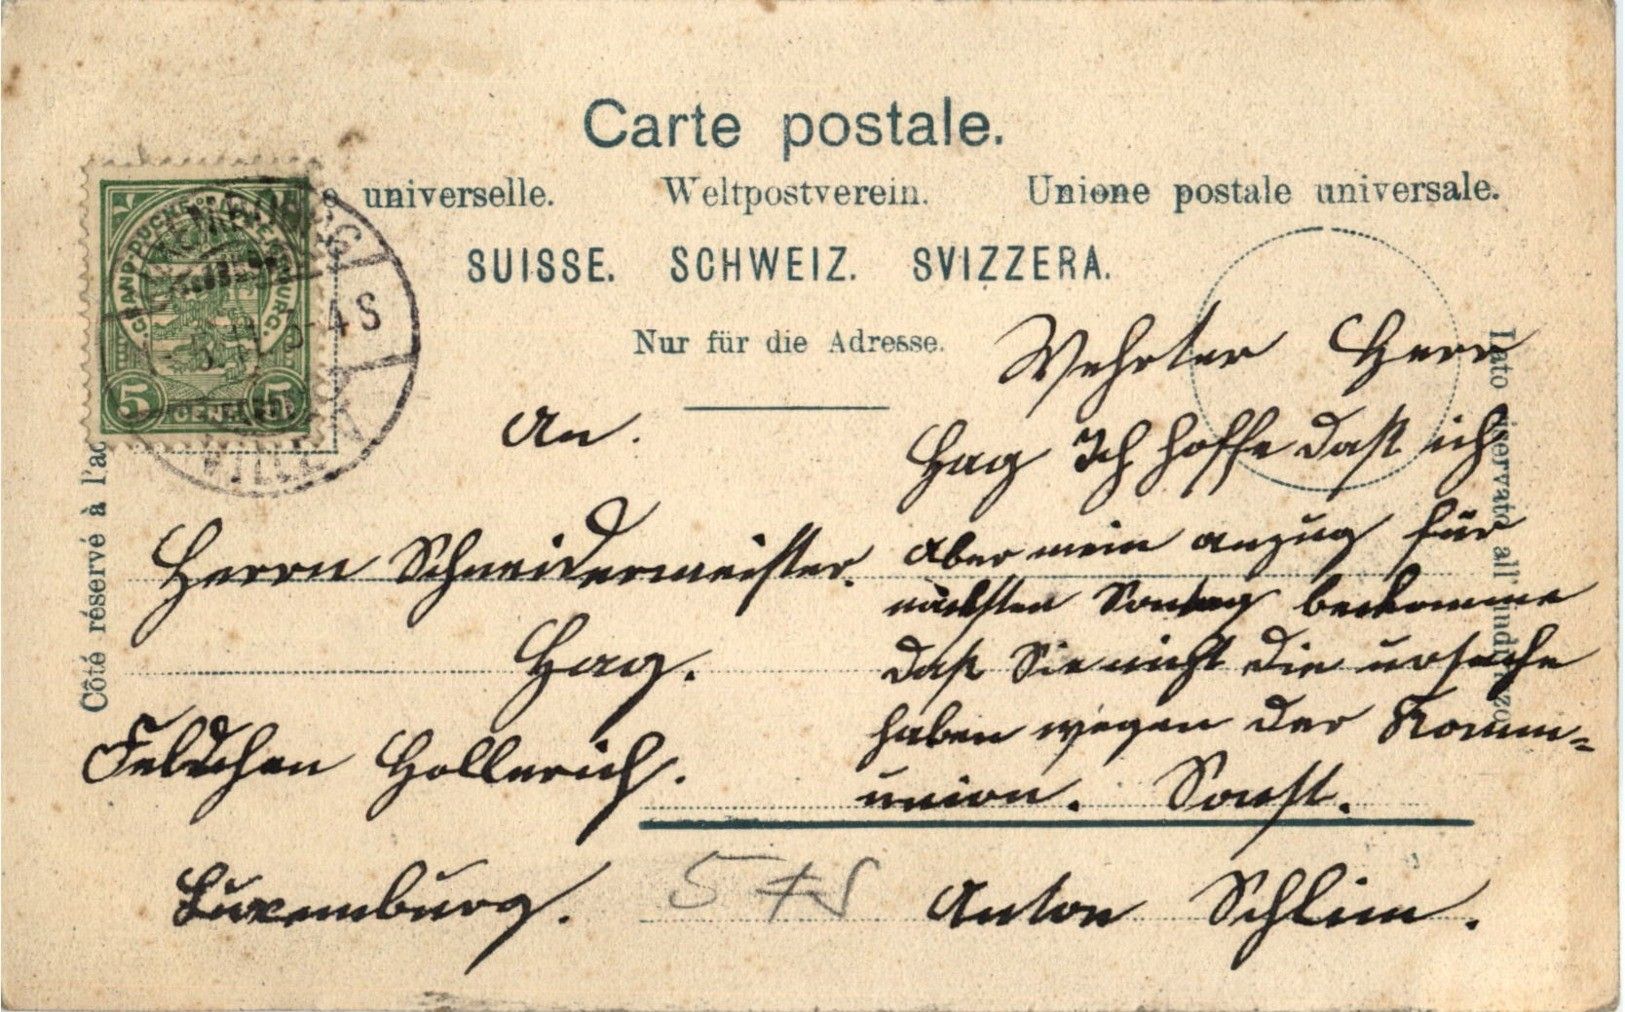 Carte postale.
e universelle. Weltpostverein. Unione postale universale.
SUISSE. SCHWEIZ. SVIZZERA.
Nur für die Adresse.
Côté réservé à l'ad
Lato riservato all' indirizzo
GRAND DUCHÉ DE LUXEMBOURG.
5 CENTIMES 5
LUXEMBURG
3-4 S
An.
Herrn Schneidermeister.
Hag.
Feldchen Hollerich.
Luxemburg.
Wehrter Herr
Hag Ich hoffe daß ich
aber mein anzug für
nächsten Sontag bekomme
daß Sie nicht die ursache
haben wegen der Komm=
union. Sonst.
Anton Schlim.
5